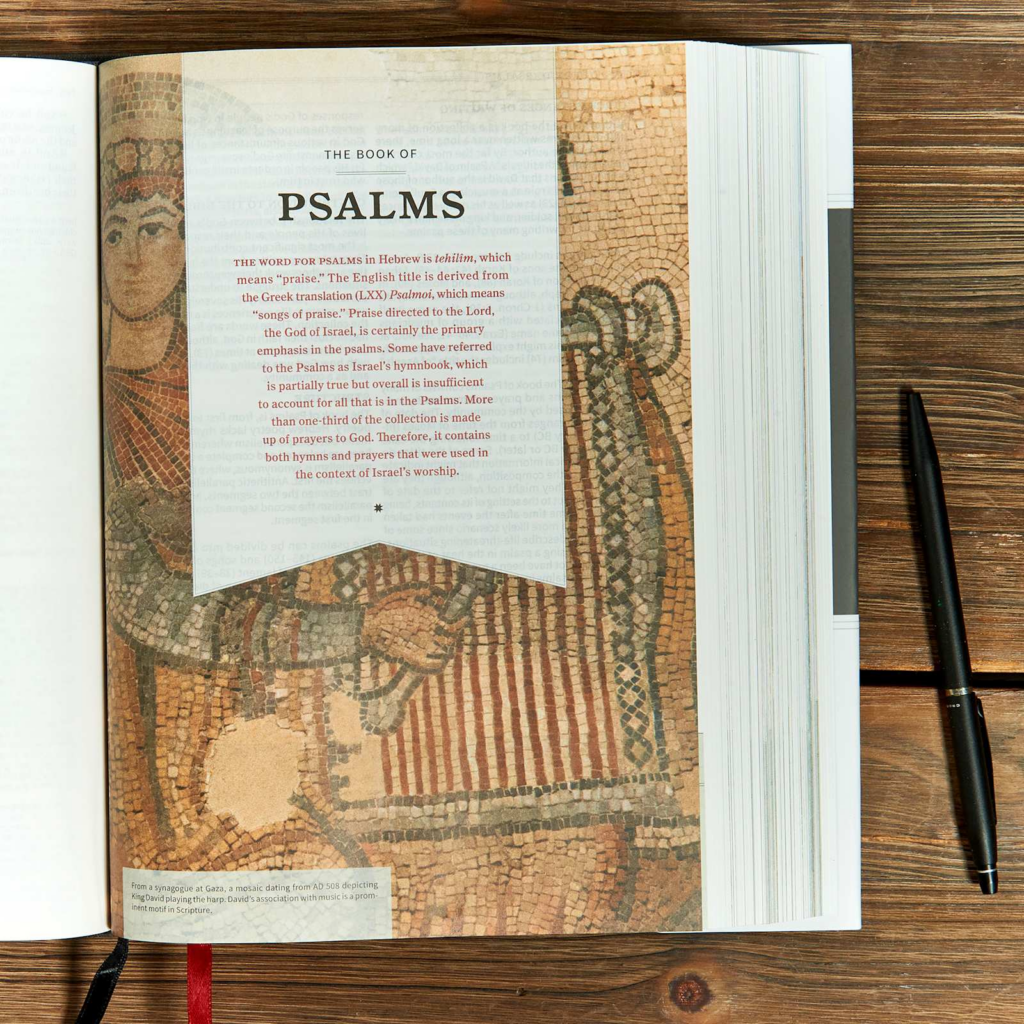 THE BOOK OF
PSALMS
THE WORD FOR PSALMS in Hebrew is tehilim, which
means “praise.” The English title is derived from
the Greek translation (LXX) Psalmoi, which means
“songs of praise.” Praise directed to the Lord,
the God of Israel, is certainly the primary
emphasis in the psalms. Some have referred
to the Psalms as Israel’s hymnbook, which
is partially true but overall is insufficient
to account for all that is in the Psalms. More
than one-third of the collection is made
up of prayers to God. Therefore, it contains
both hymns and prayers that were used in
the context of Israel’s worship.
From a synagogue at Gaza, a mosaic dating from AD 508 depicting
King David playing the harp. David’s association with music is a prom-
inent motif in Scripture.